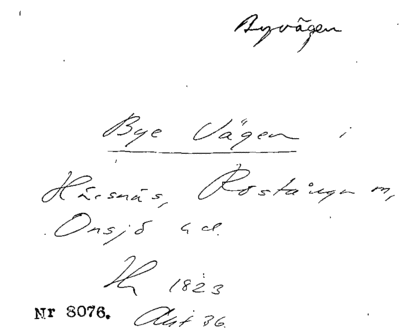 Byvägen
Bye Vägen i
Röstånga m,
Onsjö hd.
1823
Nr 8076. Akt 36.